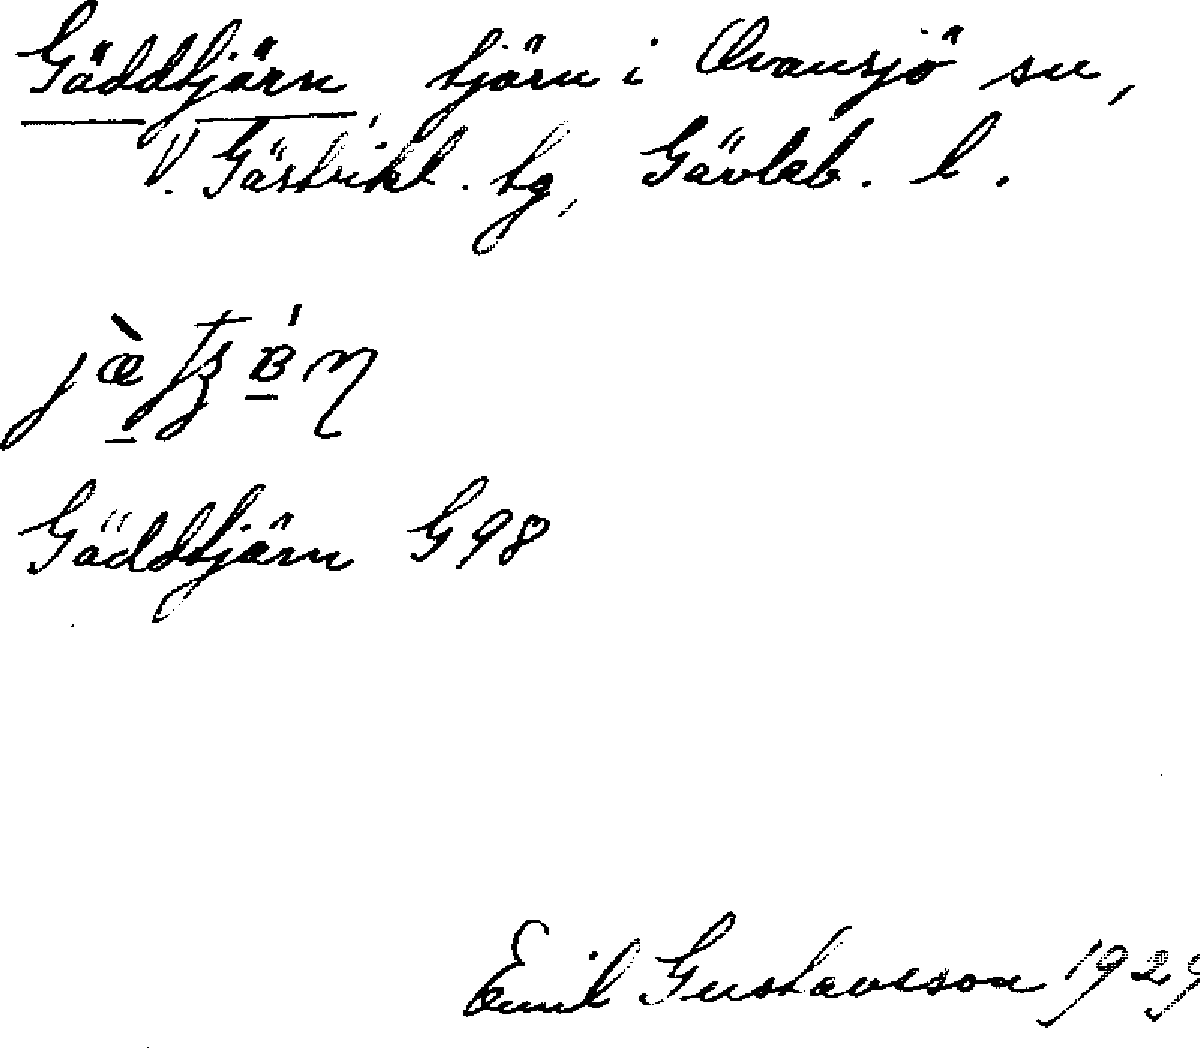 Gäddtjärn, tjärn i Ovansjö sn,
V. Gästrikl. tg, Gävleb. l.
Gäddtjärn G 98
Emil Gustavsson 1929